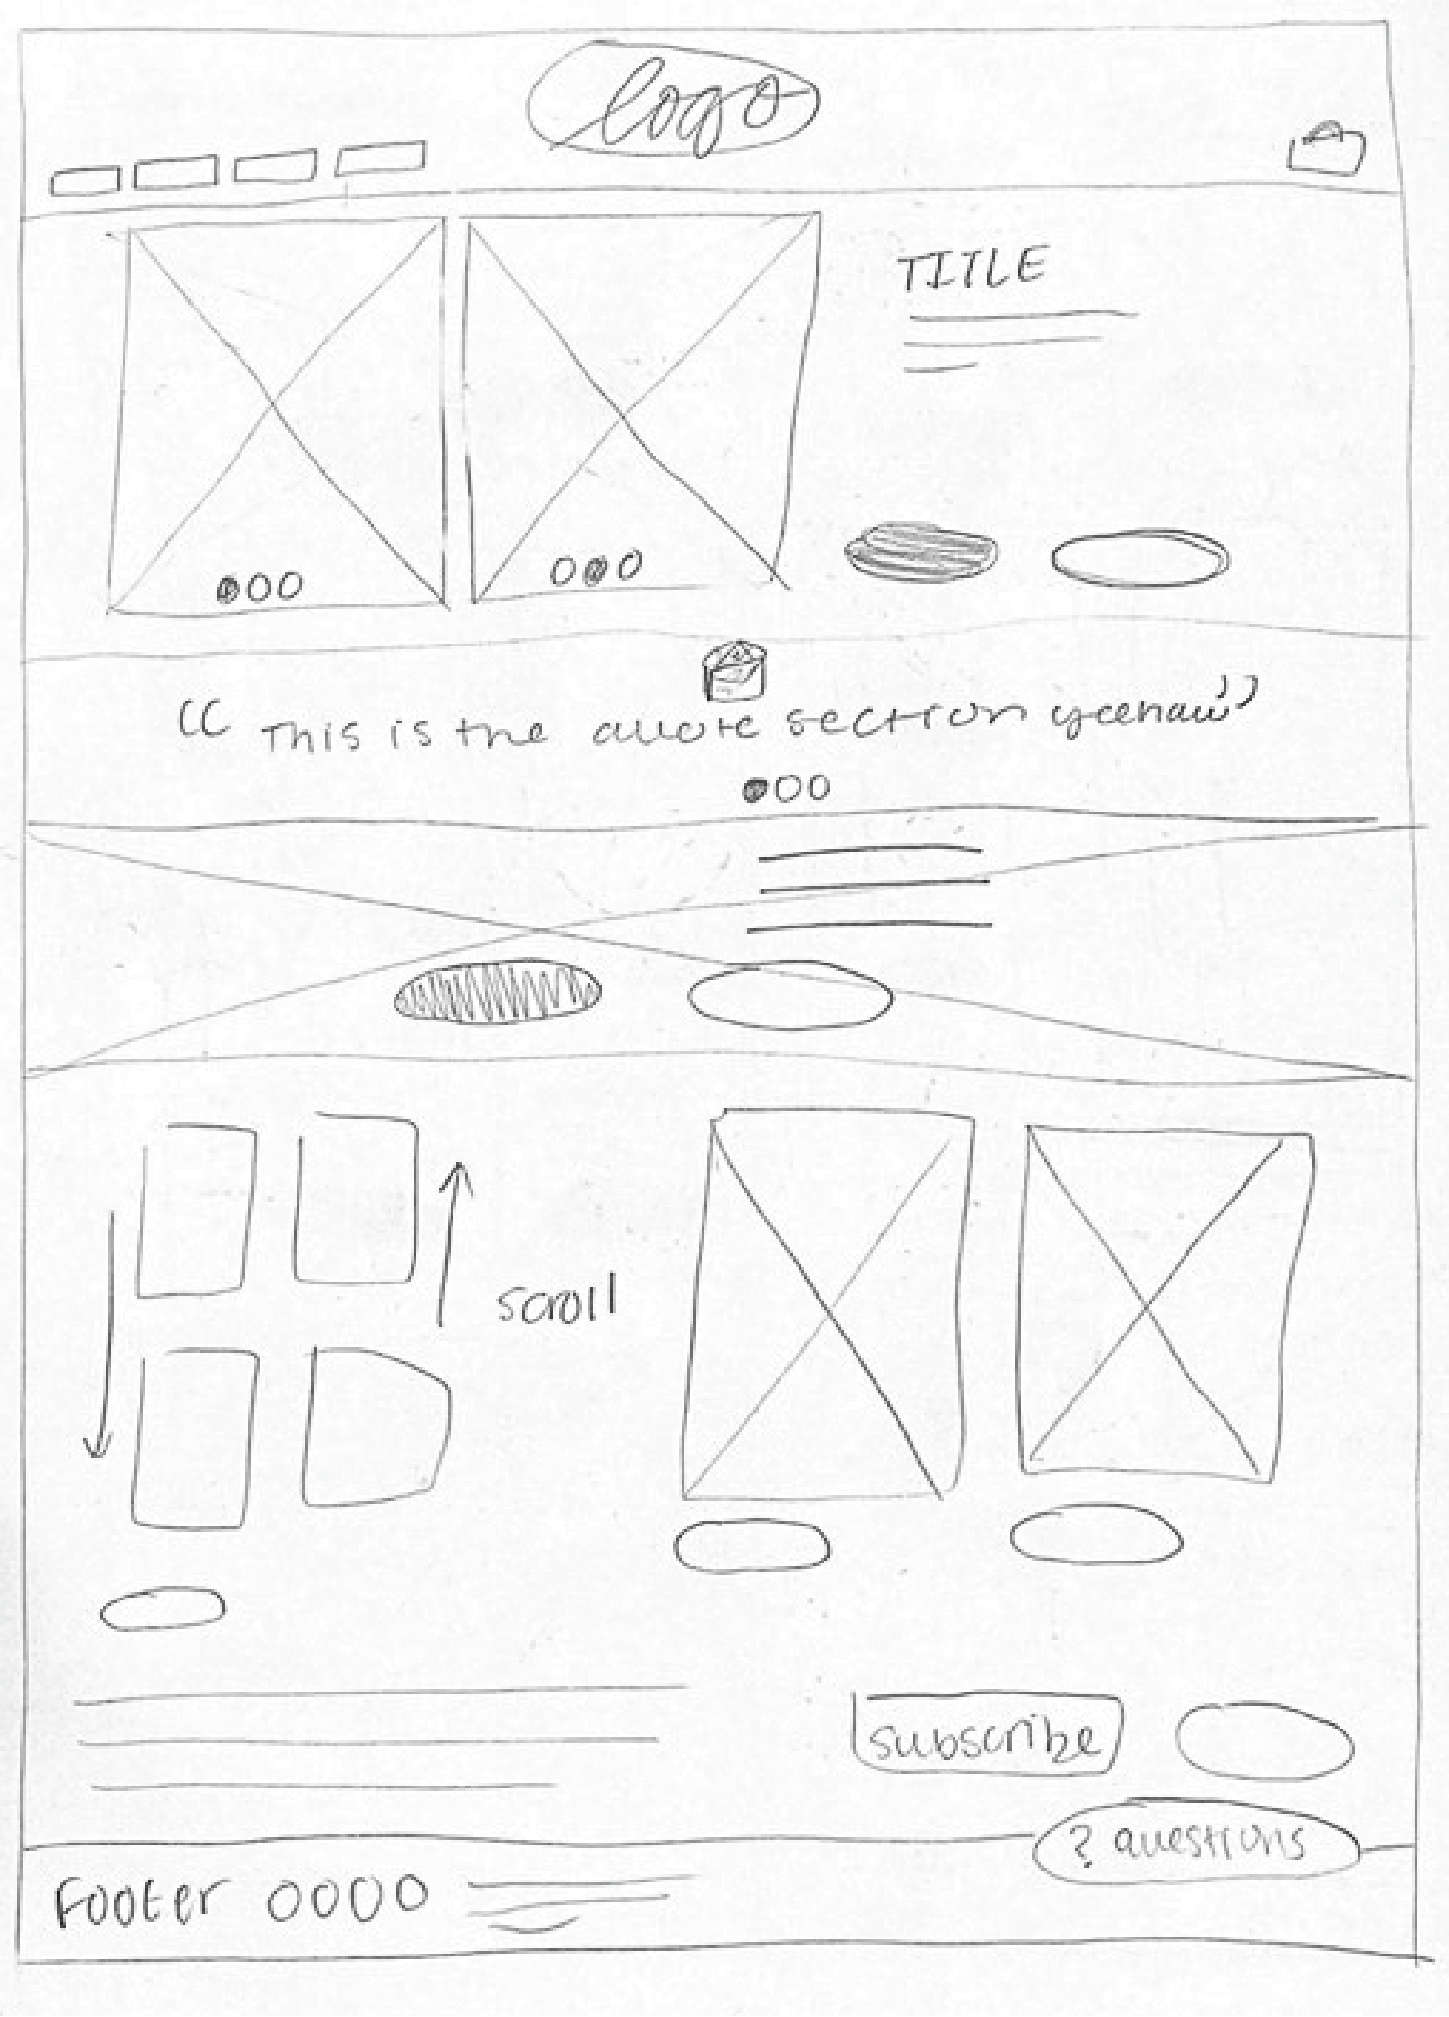 logo
TITLE
“ This is the quote section yeehaw”
scroll
subscribe
? questions
Footer